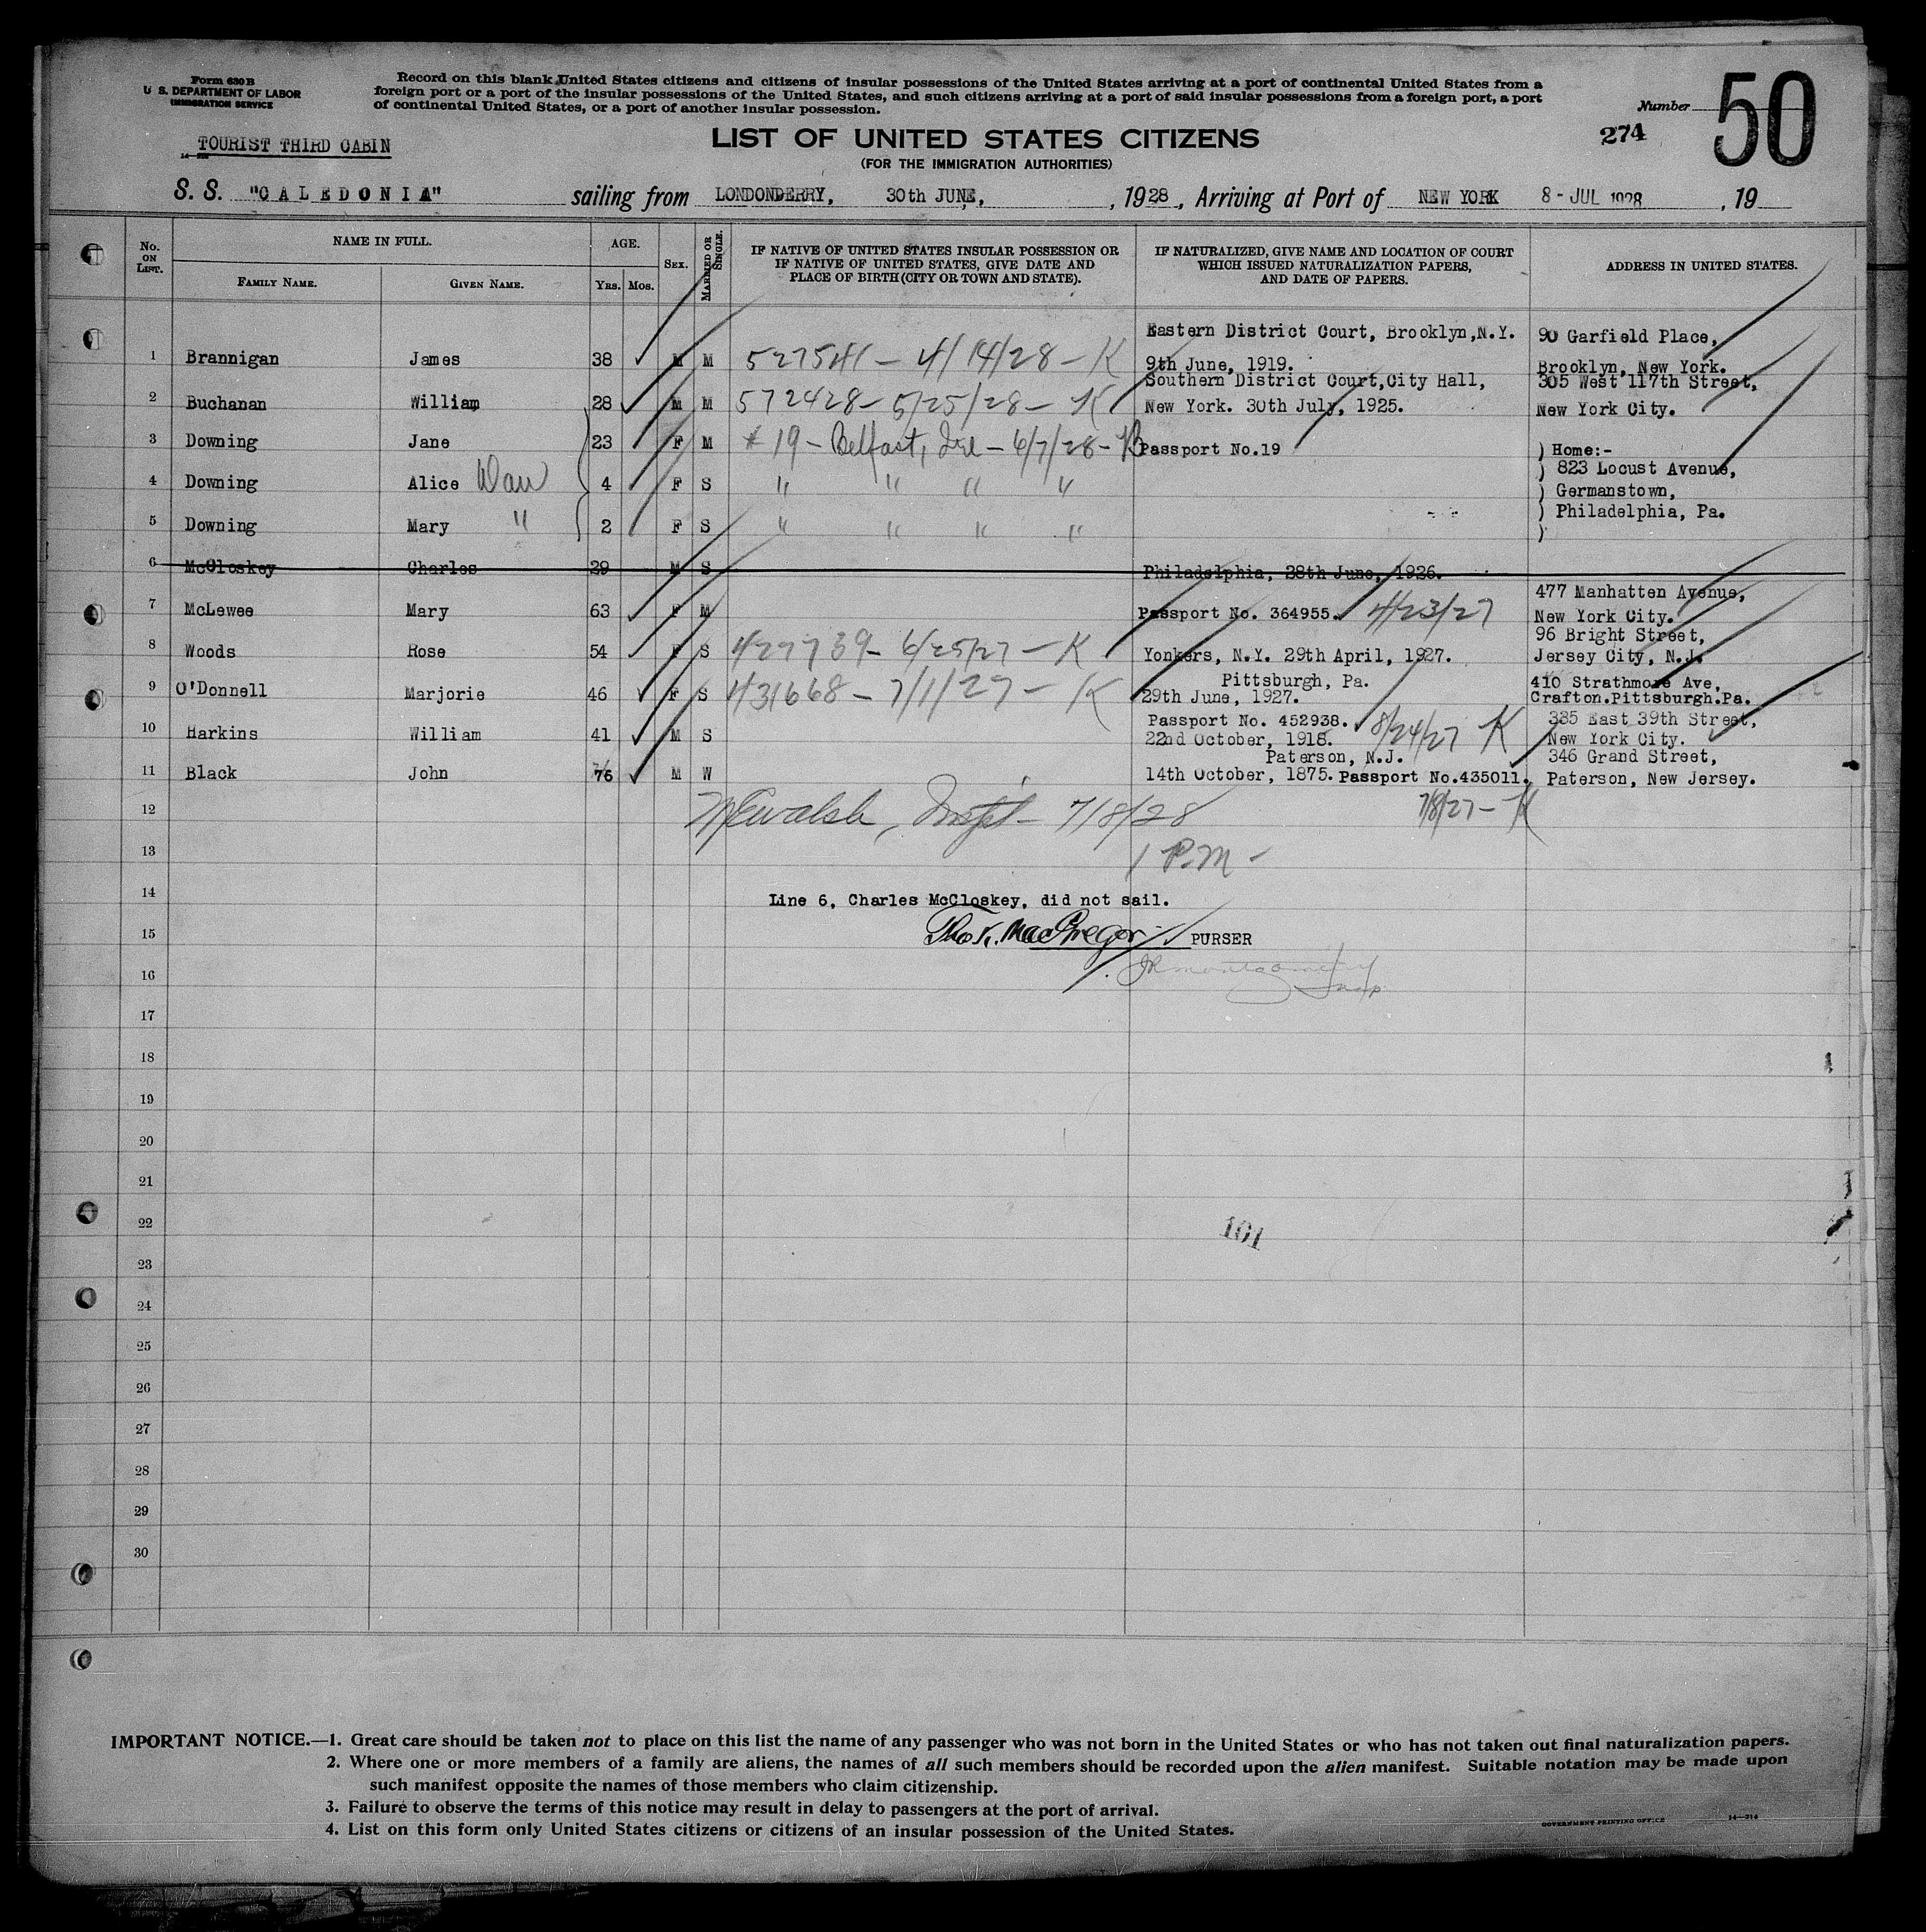 Form 630 B
U. S. DEPARTMENT OF LABOR
IMMIGRATION SERVICE
Record on this blank United States citizens and citizens of insular possessions of the United States arriving at a port of continental United States from a
foreign port or a port of the insular possessions of the United States, and such citizens arriving at a port of said insular possessions from a foreign port, a port
of continental United States, or a port of another insular possession.
Number 50
274
TOURIST THIRD CABIN
LIST OF UNITED STATES CITIZENS
(FOR THE IMMIGRATION AUTHORITIES)
S. S. "CALEDONIA" sailing from LONDONDERRY, 30th JUNE, , 1928, Arriving at Port of NEW YORK 8 - JUL 1928 , 19
No. ON LIST.
NAME IN FULL.
FAMILY NAME. GIVEN NAME.
AGE.
YRS. MOS.
SEX.
MARRIED OR SINGLE.
IF NATIVE OF UNITED STATES INSULAR POSSESSION OR
IF NATIVE OF UNITED STATES, GIVE DATE AND
PLACE OF BIRTH (CITY OR TOWN AND STATE).
IF NATURALIZED, GIVE NAME AND LOCATION OF COURT
WHICH ISSUED NATURALIZATION PAPERS,
AND DATE OF PAPERS.
ADDRESS IN UNITED STATES.
Eastern District Court, Brooklyn,N.Y. 90 Garfield Place,
1 Brannigan James 38 M M 527541 - 4/14/28 - K 9th June, 1919. Brooklyn, New York.
Southern District Court,City Hall, 305 West 117th Street,
2 Buchanan William 28 M M 572428 - 5/25/28 - K New York. 30th July, 1925. New York City.
3 Downing Jane 23 F M # 19 - Belfast, Ire - 6/7/28 - Passport No.19 ) Home:-
) 823 Locust Avenue,
4 Downing Alice Dau 4 F S " " " "
) Germanstown,
) Philadelphia, Pa.
5 Downing Mary " 2 F S " " " "
)
6 McCloskey Charles 29 M S Philadelphia, 28th June, 1926.
477 Manhatten Avenue,
7 McLewee Mary 63 F M Passport No. 364955. 4/23/27 New York City.
96 Bright Street,
8 Woods Rose 54 F S 427739 - 6/25/27 - K Yonkers, N.Y. 29th April, 1927. Jersey City, N.J.
Pittsburgh, Pa. 410 Strathmore Ave,
9 O'Donnell Marjorie 46 F S 431668 - 7/1/27 - K 29th June, 1927. Crafton.Pittsburgh.Pa.
Passport No. 452938. 8/24/27 K 335 East 39th Street,
10 Harkins William 41 M S 22nd October, 1918. New York City.
Paterson, N.J. 346 Grand Street,
11 Black John 76 M W 14th October, 1875. Passport No.435011. Paterson, New Jersey.
12 Walsh, Inspt - 7/8/28 7/8/27 - K
13 1 P.M -
14 Line 6, Charles McCloskey, did not sail.
15 Thos K. MacGregor PURSER
16 JR Montgomery
Insp
17
18
19
20
21
22 101
23
24
25
26
27
28
29
30
IMPORTANT NOTICE.—1. Great care should be taken not to place on this list the name of any passenger who was not born in the United States or who has not taken out final naturalization papers.
2. Where one or more members of a family are aliens, the names of all such members should be recorded upon the alien manifest. Suitable notation may be made upon
such manifest opposite the names of those members who claim citizenship.
3. Failure to observe the terms of this notice may result in delay to passengers at the port of arrival.
4. List on this form only United States citizens or citizens of an insular possession of the United States.
GOVERNMENT PRINTING OFFICE 14—214